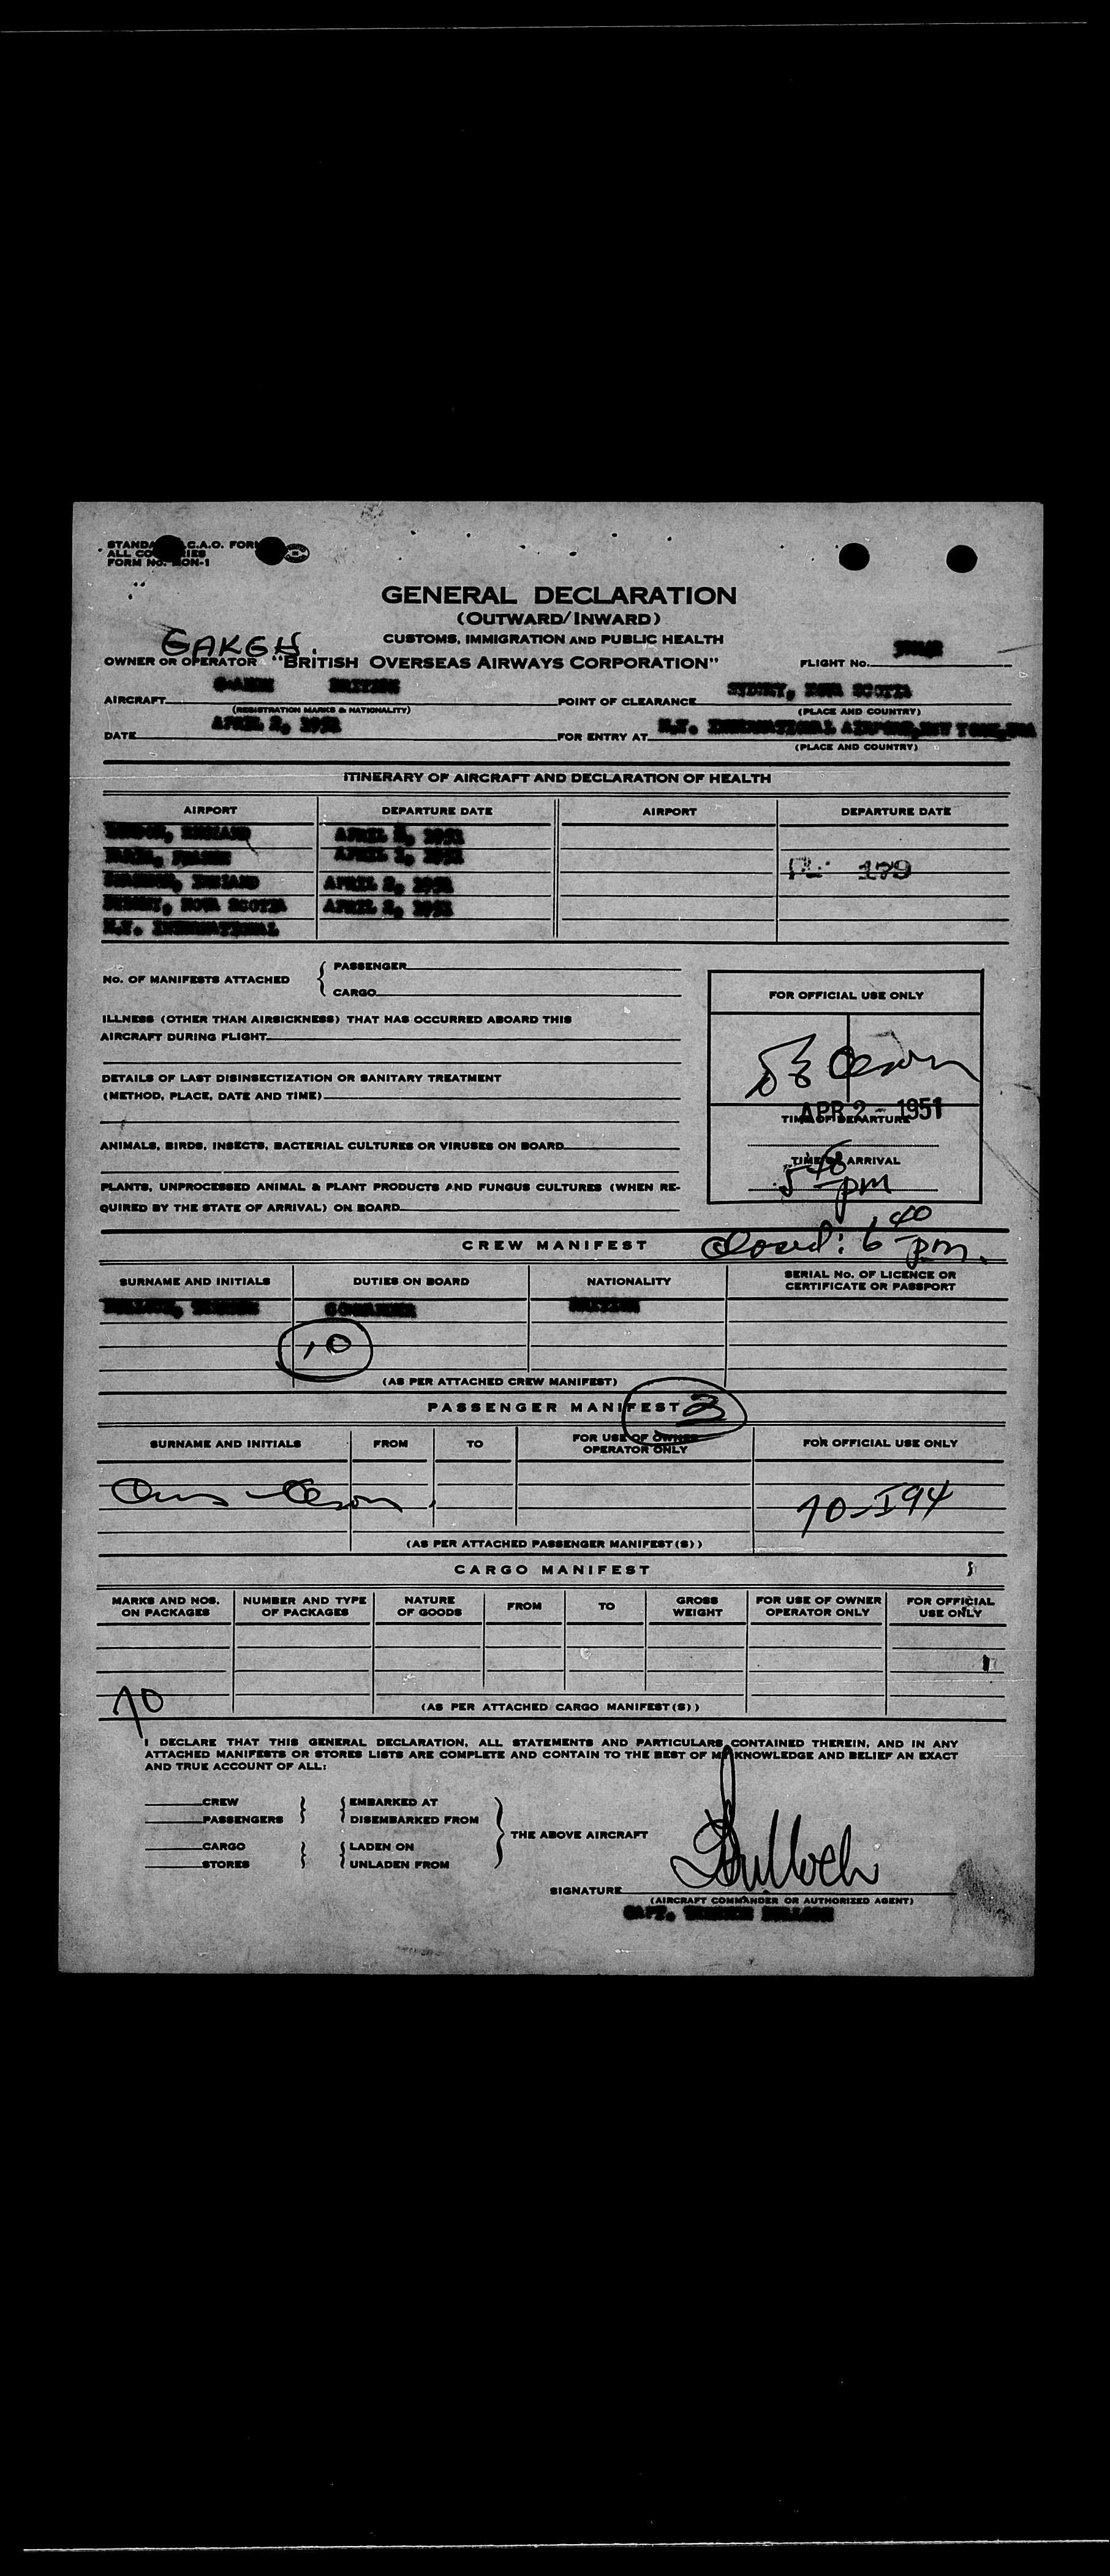 GAKGH.
GENERAL DECLARATION
(OUTWARD/INWARD)
CUSTOMS, IMMIGRATION AND PUBLIC HEALTH
OWNER OR OPERATOR "BRITISH OVERSEAS AIRWAYS CORPORATION" FLIGHT NO.
AIRCRAFT BRITISH POINT OF CLEARANCE SYDNEY, NOVA SCOTIA
(REGISTRATION MARKS & NATIONALITY) (PLACE AND COUNTRY)
DATE APRIL 2, 1951 FOR ENTRY AT N.Y. INTERNATIONAL AIRPORT, NEW YORK, USA
(PLACE AND COUNTRY)
ITINERARY OF AIRCRAFT AND DECLARATION OF HEALTH
AIRPORT DEPARTURE DATE AIRPORT DEPARTURE DATE
LONDON, ENGLAND APRIL 1951
APRIL 1951
179
APRIL 2, 1951
SYDNEY, NOVA SCOTIA APRIL 2, 1951
N.Y. INTERNATIONAL
NO. OF MANIFESTS ATTACHED PASSENGER
CARGO
FOR OFFICIAL USE ONLY
ILLNESS (OTHER THAN AIRSICKNESS) THAT HAS OCCURRED ABOARD THIS
AIRCRAFT DURING FLIGHT
DETAILS OF LAST DISINSECTIZATION OR SANITARY TREATMENT
(METHOD, PLACE, DATE AND TIME)
APR 2 - 1951
TIME OF DEPARTURE
ANIMALS, BIRDS, INSECTS, BACTERIAL CULTURES OR VIRUSES ON BOARD
TIME OF ARRIVAL
5 48 pm
PLANTS, UNPROCESSED ANIMAL & PLANT PRODUCTS AND FUNGUS CULTURES (WHEN RE-
QUIRED BY THE STATE OF ARRIVAL) ON BOARD
Closed: 6 40 pm.
CREW MANIFEST
SURNAME AND INITIALS DUTIES ON BOARD NATIONALITY SERIAL NO. OF LICENCE OR
CERTIFICATE OR PASSPORT
COMMANDER BRITISH
10
(AS PER ATTACHED CREW MANIFEST)
PASSENGER MANIFEST
SURNAME AND INITIALS FROM TO FOR USE OF OWNER
OPERATOR ONLY FOR OFFICIAL USE ONLY
70-I94
(AS PER ATTACHED PASSENGER MANIFEST(S))
CARGO MANIFEST
MARKS AND NOS. ON PACKAGES NUMBER AND TYPE OF PACKAGES NATURE OF GOODS FROM TO GROSS WEIGHT FOR USE OF OWNER OPERATOR ONLY FOR OFFICIAL USE ONLY
70
(AS PER ATTACHED CARGO MANIFEST(S))
I DECLARE THAT THIS GENERAL DECLARATION, ALL STATEMENTS AND PARTICULARS CONTAINED THEREIN, AND IN ANY
ATTACHED MANIFESTS OR STORES LISTS ARE COMPLETE AND CONTAIN TO THE BEST OF MY KNOWLEDGE AND BELIEF AN EXACT
AND TRUE ACCOUNT OF ALL:
CREW EMBARKED AT
PASSENGERS DISEMBARKED FROM
THE ABOVE AIRCRAFT
CARGO LADEN ON
STORES UNLADEN FROM
Bulloch
SIGNATURE
(AIRCRAFT COMMANDER OR AUTHORIZED AGENT)
CAPT. TERENCE BULLOCH